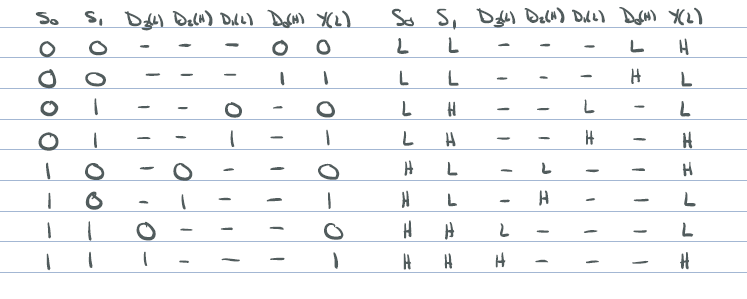 S₀ S₁ D₃(L) D₂(H) D₁(L) D₀(H) Y(L) S₀ S₁ D₃(L) D₂(H) D₁(L) D₀(H) Y(L)
0 0 - - - 0 0 L L - - - L H
0 0 - - - 1 1 L L - - - H L
0 1 - - 0 - 0 L H - - L - L
0 1 - - 1 - 1 L H - - H - H
1 0 - 0 - - 0 H L - L - - H
1 0 - 1 - - 1 H L - H - - L
1 1 0 - - - 0 H H L - - - L
1 1 1 - - - 1 H H H - - - H